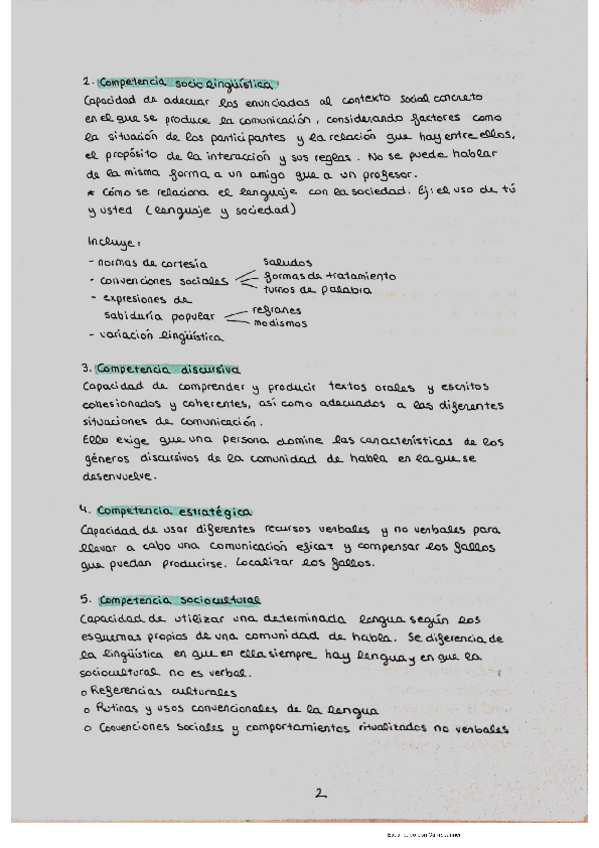 2. Competencia sociolingüística:
Capacidad de adecuar los enunciados al contexto social concreto
en el que se produce la comunicación, considerando factores como
la situación de los participantes y la relación que hay entre ellos,
el propósito de la interacción y sus reglas. No se puede hablar
de la misma forma a un amigo que a un profesor.
* Cómo se relaciona el lenguaje con la sociedad. Ej: el uso de tú
y usted (lenguaje y sociedad)
Incluye:
- normas de cortesía
- convenciones sociales
saludos
formas de tratamiento
turnos de palabra
- expresiones de
sabiduría popular
refranes
modismos
- variación lingüística
3. Competencia discursiva
Capacidad de comprender y producir textos orales y escritos
cohesionados y coherentes, así como adecuados a las diferentes
situaciones de comunicación.
Ello exige que una persona domine las características de los
géneros discursivos de la comunidad de habla en la que se
desenvuelve.
4. Competencia estratégica
Capacidad de usar diferentes recursos verbales y no verbales para
llevar a cabo una comunicación eficaz y compensar los fallos
que puedan producirse. Localizar los fallos.
5. Competencia sociocultural
Capacidad de utilizar una determinada lengua según los
esquemas propios de una comunidad de habla. Se diferencia de
la lingüística en que en ella siempre hay lengua y en que la
sociocultural no es verbal.
o Referencias culturales
o Rutinas y usos convencionales de la lengua
o Convenciones sociales y comportamientos ritualizados no verbales
2